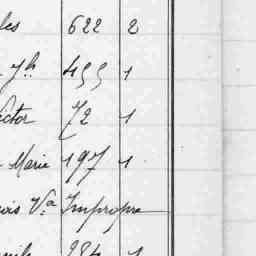 les 622 2
Jh 455 1
ctor 72 1
Marie 197 1
ouis Va Impropre
284 1